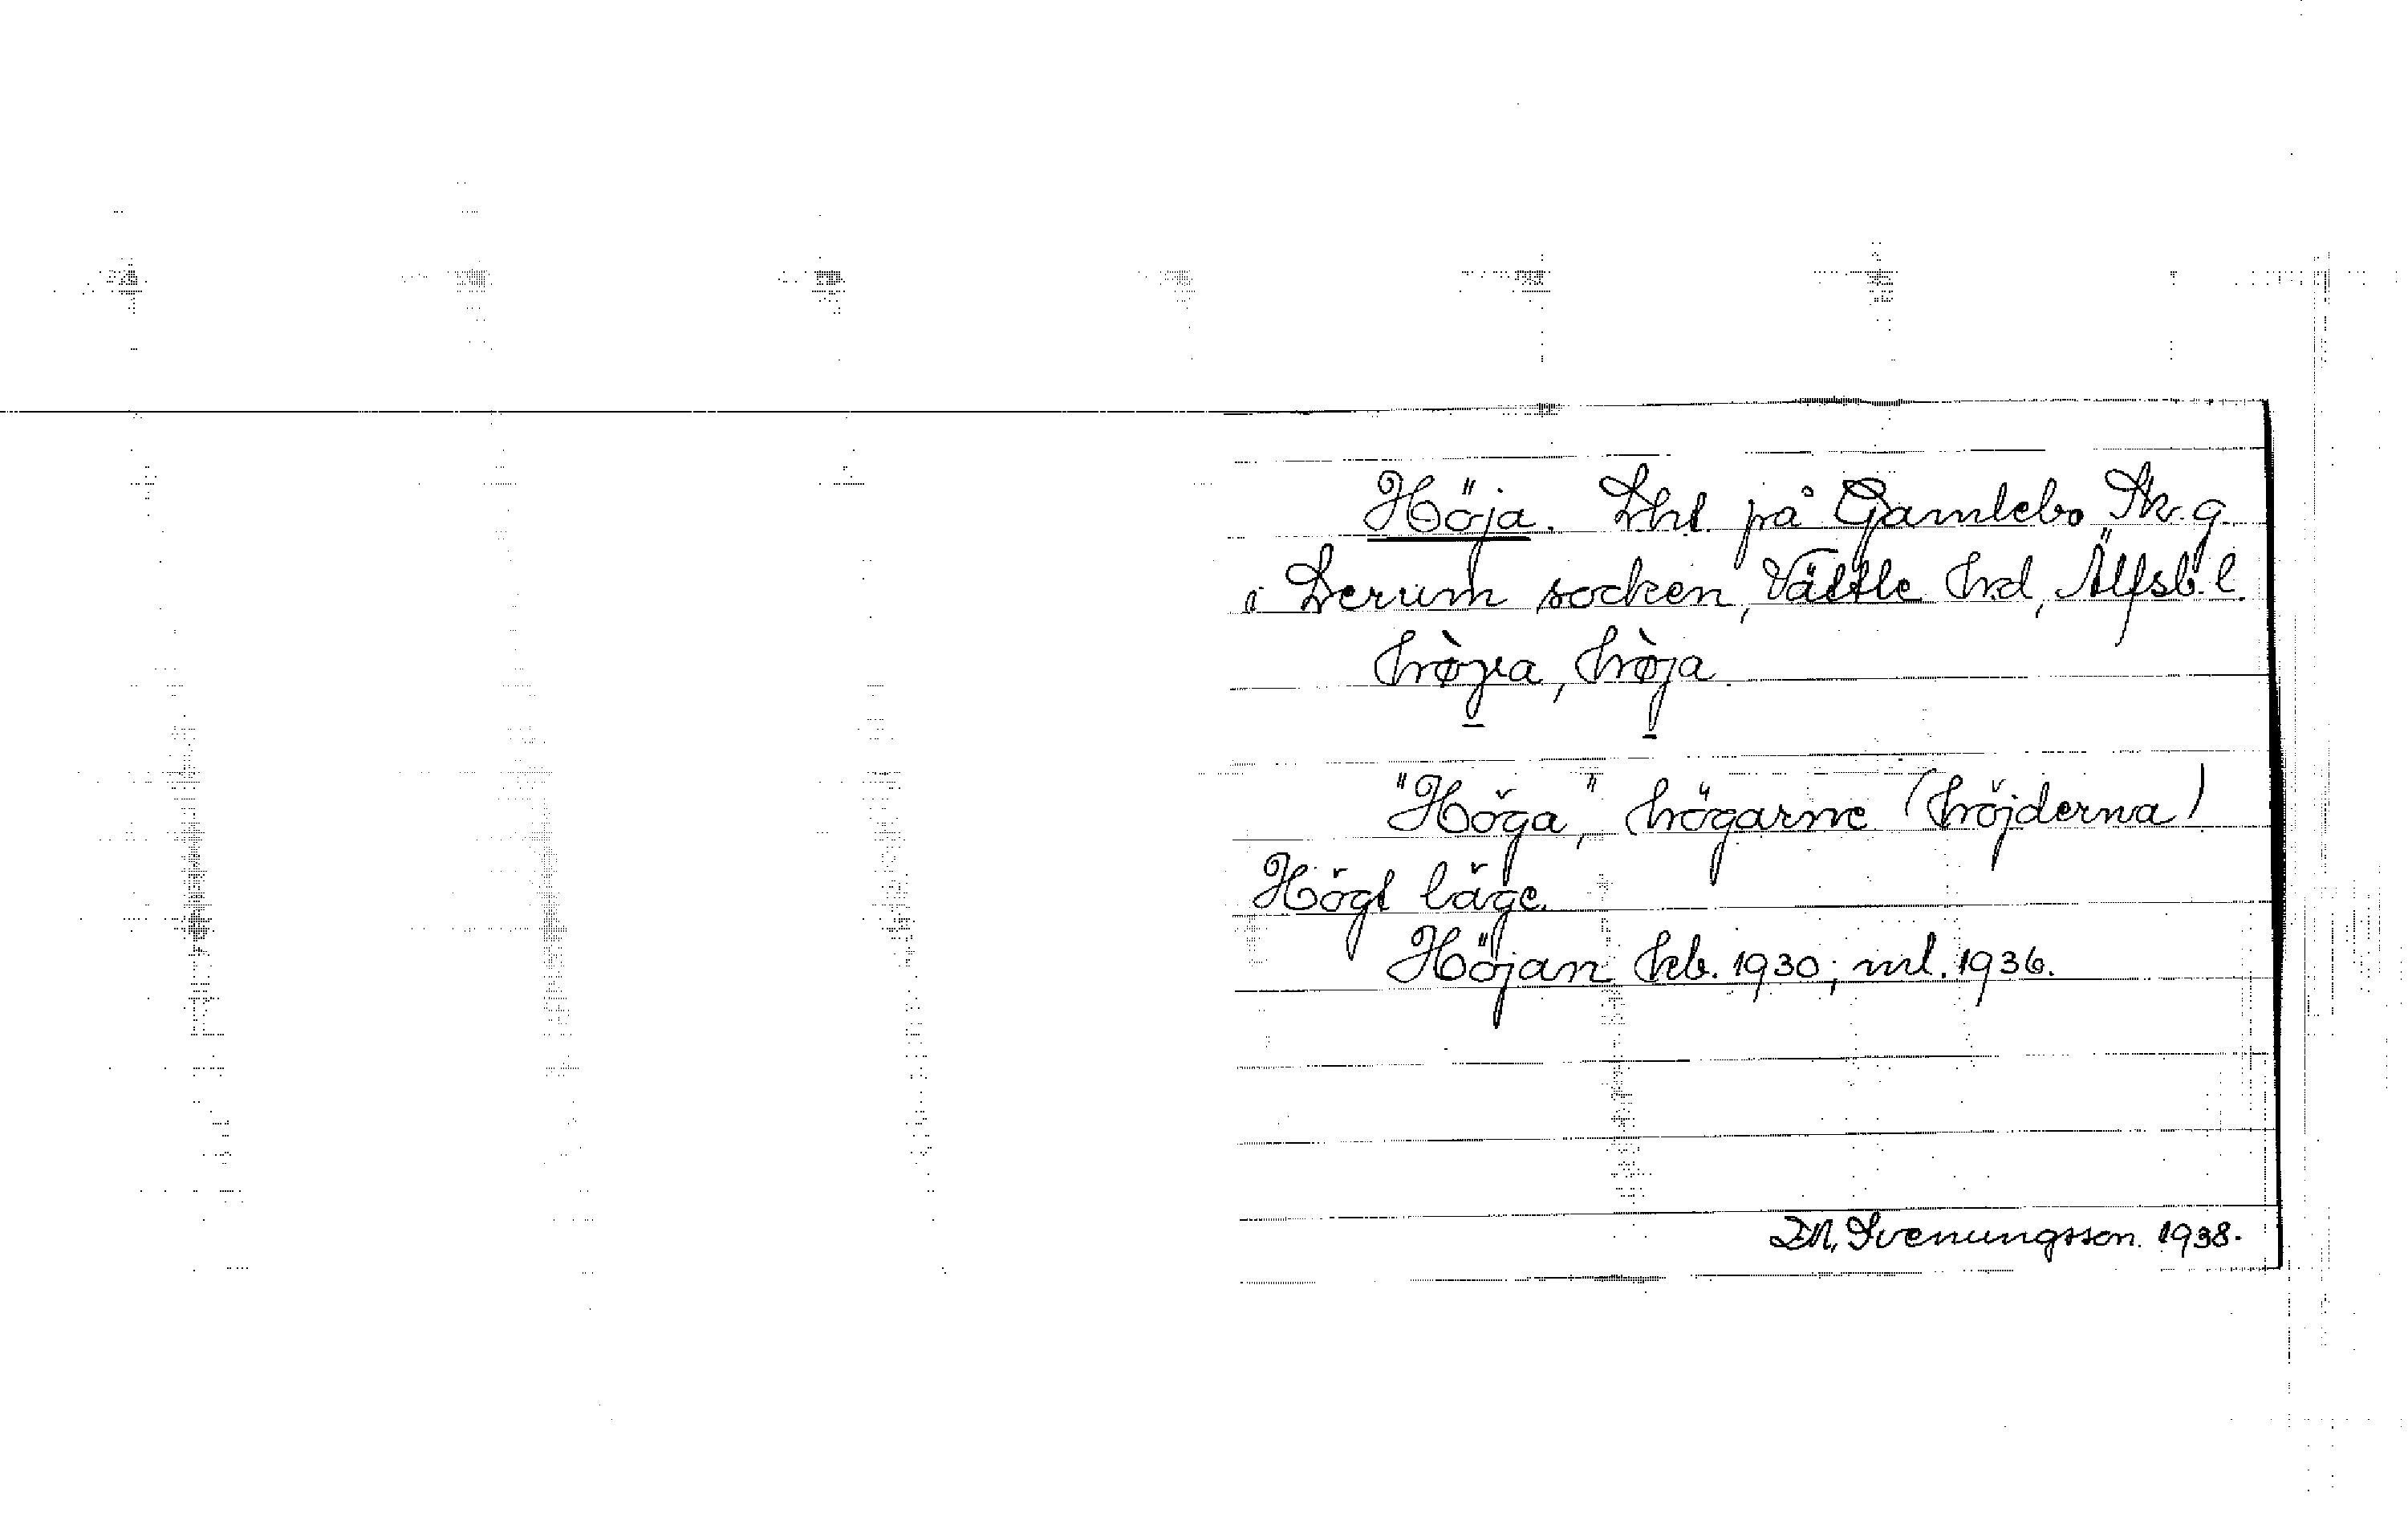 Höja. Lht. på Gamlebo Skr.g.
i Lerum socken, Vättle hrd, Älfsb. l.
hòjra, hòja.
"Höga", högarne (höjderna)
Högt läge.
Höjan hfb. 1930; ml. 1936.
D.A. Svenungsson. 1938.